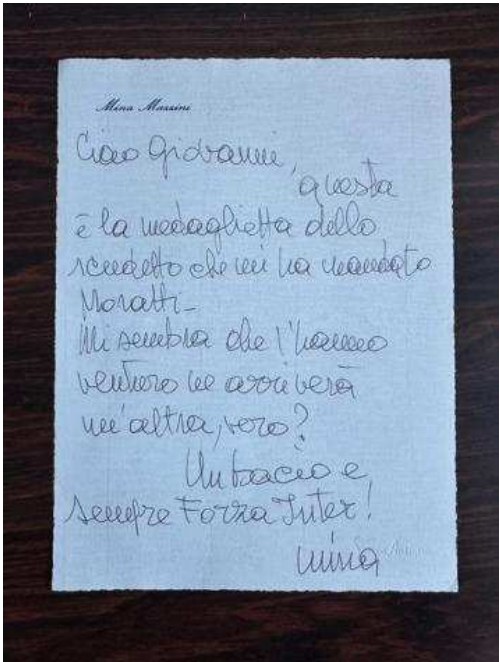 Mina Mazzini
Ciao Giovanni,
questa
è la medaglietta dello
scudetto che mi ha mandato
Moratti-
Mi sembra che l'hanno
venturo ne arriverà
un'altra, vero?
Un bacio e,
sempre Forza Inter!
mina